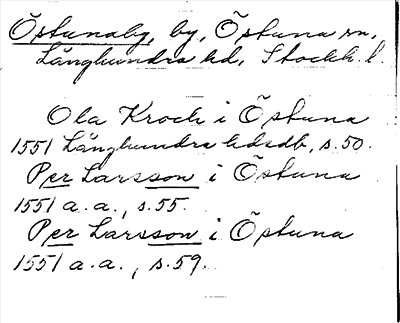 Östunaby, by, Östuna sn,
Långhundra hd, Stockh. l.
Ola Krock i Östuna
1551 Långhundra hdsdb, s. 50.
Per Larsson i Östuna
1551 a. a., s. 55.
Per Larsson i Östuna
1551 a. a., s. 59.